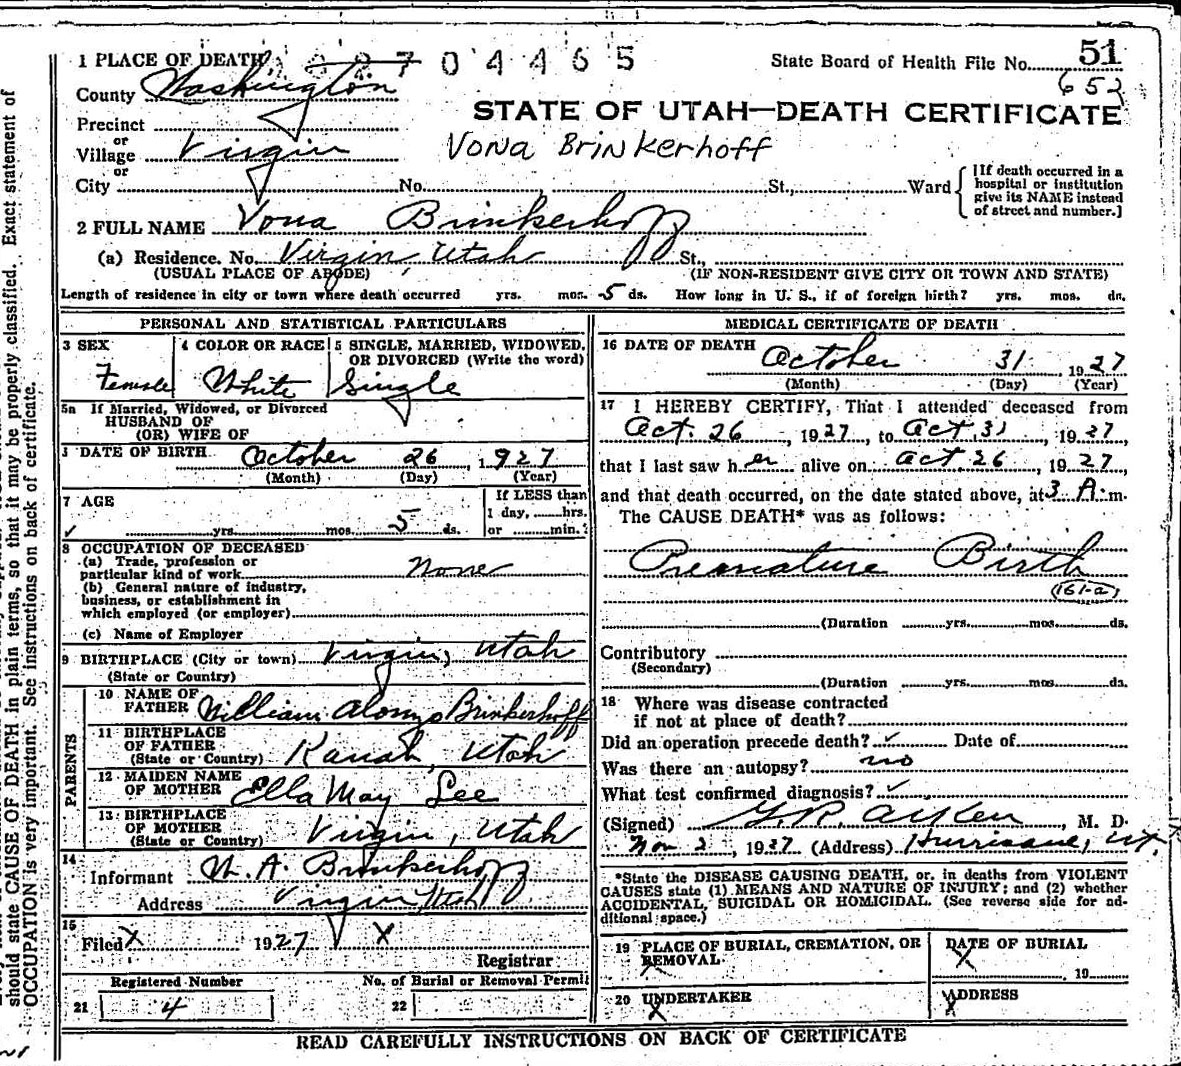 1 PLACE OF DEATH 2704465
State Board of Health File No. 51
652
County Washington
STATE OF UTAH—DEATH CERTIFICATE
Precinct
or
Village Virgin
Vona Brinkerhoff
or
City No. St., Ward
[If death occurred in a
hospital or institution
give its NAME instead
of street and number.]
2 FULL NAME Vona Brinkerhoff
(a) Residence. No. Virgin, Utah St.,
(USUAL PLACE OF ABODE) (IF NON-RESIDENT GIVE CITY OR TOWN AND STATE)
Length of residence in city or town where death occurred yrs. mos. 5 ds. How long in U. S., if of foreign birth? yrs. mos. ds.
PERSONAL AND STATISTICAL PARTICULARS
3 SEX
Female
4 COLOR OR RACE
White
5 SINGLE, MARRIED, WIDOWED,
OR DIVORCED (Write the word)
Single
5a If Married, Widowed, or Divorced
HUSBAND OF
(OR) WIFE OF
DATE OF BIRTH October 26, 1927
(Month) (Day) (Year)
7 AGE
yrs. mos. 5 ds.
If LESS than
1 day, hrs.
or min.?
8 OCCUPATION OF DECEASED
(a) Trade, profession or
particular kind of work None
(b) General nature of industry,
business, or establishment in
which employed (or employer)
(c) Name of Employer
9 BIRTHPLACE (City or town) Virgin, Utah
(State or Country)
PARENTS
10 NAME OF
FATHER William Alonzo Brinkerhoff
11 BIRTHPLACE
OF FATHER
(State or Country) Kanab, Utah
12 MAIDEN NAME
OF MOTHER Ella May Lee
13 BIRTHPLACE
OF MOTHER
(State or Country) Virgin, Utah
14
Informant W. A. Brinkerhoff
Address Virgin Utah
15
Filed X 1927 X
Registrar
Registered Number No. of Burial or Removal Permit
21 4 22
MEDICAL CERTIFICATE OF DEATH
16 DATE OF DEATH October 31, 1927
(Month) (Day) (Year)
17 I HEREBY CERTIFY, That I attended deceased from
Oct. 26, 1927, to Oct. 31, 1927,
that I last saw her alive on Oct. 26, 1927,
and that death occurred, on the date stated above, at 3 A. m.
The CAUSE DEATH* was as follows:
Premature Birth
161-a
(Duration yrs. mos. ds.
Contributory
(Secondary)
(Duration yrs. mos. ds.
18 Where was disease contracted
if not at place of death?
Did an operation precede death? ✓ Date of
Was there an autopsy? no
What test confirmed diagnosis? ✓
(Signed) G. R. Aiken, M. D.
Nov 2, 1927 (Address) Hurricane, Ut.
*State the DISEASE CAUSING DEATH, or, in deaths from VIOLENT
CAUSES state (1) MEANS AND NATURE OF INJURY; and (2) whether
ACCIDENTAL, SUICIDAL OR HOMICIDAL. (See reverse side for ad-
ditional space.)
19 PLACE OF BURIAL, CREMATION, OR
REMOVAL
X
DATE OF BURIAL
X
19
20 UNDERTAKER
X
ADDRESS
X
READ CAREFULLY INSTRUCTIONS ON BACK OF CERTIFICATE
should state CAUSE OF DEATH in plain terms, so that it may be properly classified. Exact statement of
OCCUPATION is very important. See instructions on back of certificate.